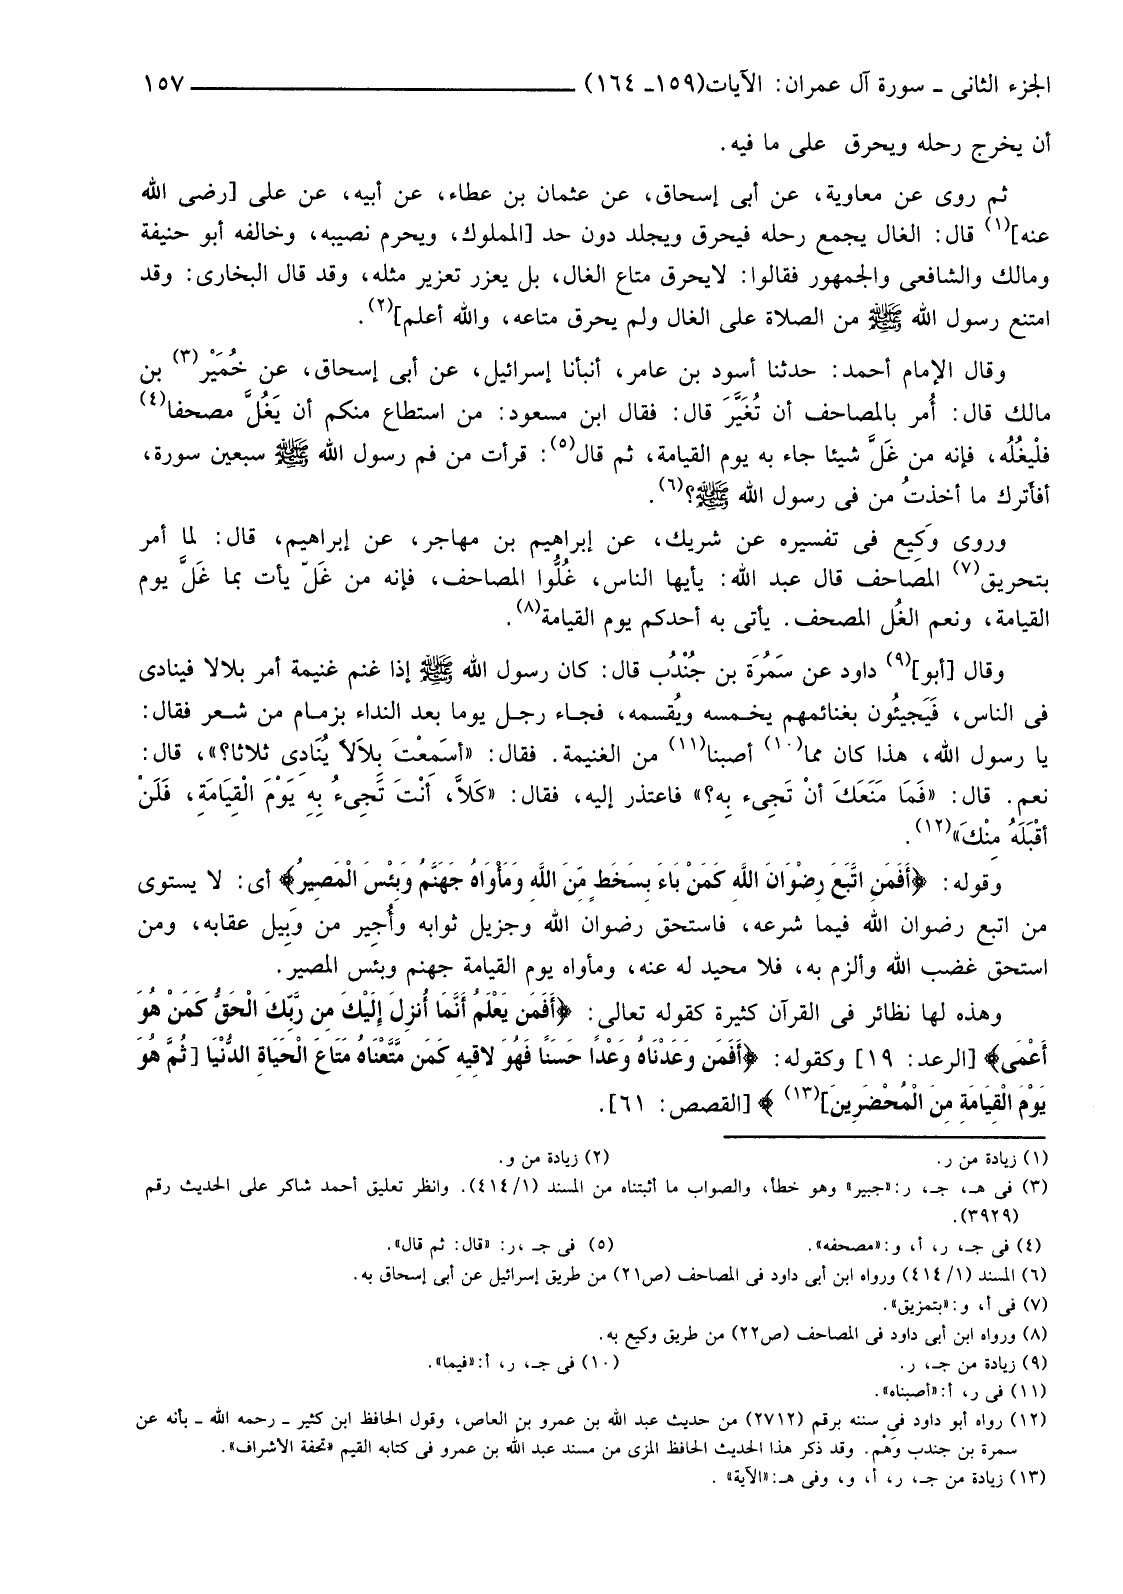 الجزء الثانى ـ سورة آل عمران: الآيات(١٥٩ـ ١٦٤) ١٥٧
أن يخرج رحله ويحرق على ما فيه.
ثم روى عن معاوية، عن أبى إسحاق، عن عثمان بن عطاء، عن أبيه، عن على [رضى الله
عنه](١) قال: الغال يجمع رحله فيحرق ويجلد دون حد [المملوك، ويحرم نصيبه، وخالفه أبو حنيفة
ومالك والشافعى والجمهور فقالوا: لايحرق متاع الغال، بل يعزر تعزير مثله، وقد قال البخارى: وقد
امتنع رسول الله ﷺ من الصلاة على الغال ولم يحرق متاعه، والله أعلم](٢).
وقال الإمام أحمد: حدثنا أسود بن عامر، أنبأنا إسرائيل، عن أبى إسحاق، عن خُمَيْر(٣) بن
مالك قال: أُمر بالمصاحف أن تُغَيَّرَ قال: فقال ابن مسعود: من استطاع منكم أن يَغُلَّ مصحفا(٤)
فلْيغُلُه، فإنه من غَلَّ شيئا جاء به يوم القيامة، ثم قال(٥): قرأت من فم رسول الله ﷺ سبعين سورة،
أفأترك ما أخذتُ من فى رسول الله ﷺ؟(٦).
وروى وَكِيع فى تفسيره عن شريك، عن إبراهيم بن مهاجر، عن إبراهيم، قال: لما أمر
بتحريق(٧) المصاحف قال عبد الله: يأيها الناس، غُلُّوا المصاحف، فإنه من غَلّ يأت بما غَلَّ يوم
القيامة، ونعم الغُل المصحف. يأتى به أحدكم يوم القيامة(٨).
وقال [أبو](٩) داود عن سَمُرَة بن جُنْدُب قال: كان رسول الله ﷺ إذا غنم غنيمة أمر بلالا فينادى
فى الناس، فَيَجيئُون بغنائمهم يخمسه ويُقسمه، فجاء رجل يوما بعد النداء بزمام من شعر فقال:
يا رسول الله، هذا كان مما(١٠) أصبنا(١١) من الغنيمة. فقال: «أسَمِعْتَ بِلاَلاً يُنَادِى ثلاثا؟»، قال:
نعم. قال: «فَمَا مَنَعَكَ أنْ تَجِىء بِه؟» فاعتذر إليه، فقال: «كَلاَّ، أنْتَ تَجِىءُ بِهِ يَوْمَ الْقِيَامَةِ، فَلَنْ
أقْبَلَهُ مِنْكَ»(١٢).
وقوله: ﴿أَفَمَنِ اتَّبَعَ رِضْوَانَ اللَّهِ كَمَنْ بَاءَ بِسَخَطٍ مِّنَ اللَّهِ وَمَأْوَاهُ جَهَنَّمُ وَبِئْسَ الْمَصِيرُ﴾ أى: لا يستوى
من اتبع رضوان الله فيما شرعه، فاستحق رضوان الله وجزيل ثوابه وأُجِير من وَبِيل عقابه، ومن
استحق غضب الله وألزم به، فلا محيد له عنه، ومأواه يوم القيامة جهنم وبئس المصير.
وهذه لها نظائر فى القرآن كثيرة كقوله تعالى: ﴿أَفَمَن يَعْلَمُ أَنَّمَا أُنزِلَ إِلَيْكَ مِن رَّبِّكَ الْحَقُّ كَمَنْ هُوَ
أَعْمَى﴾ [الرعد: ١٩] وكقوله: ﴿أَفَمَن وَعَدْنَاهُ وَعْدًا حَسَنًا فَهُوَ لاقِيهِ كَمَن مَّتَّعْنَاهُ مَتَاعَ الْحَيَاةِ الدُّنْيَا [ثُمَّ هُوَ
يَوْمَ الْقِيَامَةِ مِنَ الْمُحْضَرِينَ](١٣) ﴾ [القصص: ٦١].
(١) زيادة من ر. (٢) زيادة من و.
(٣) فى هـ، جـ، ر:«جبير» وهو خطأ، والصواب ما أثبتناه من المسند (١/ ٤١٤). وانظر تعليق أحمد شاكر على الحديث رقم
(٣٩٢٩).
(٤) فى جـ، ر، أ، و:«مصحفه». (٥) فى جـ ،ر: «قال: ثم قال».
(٦) المسند (١/ ٤١٤) ورواه ابن أبى داود فى المصاحف (ص٢١) من طريق إسرائيل عن أبى إسحاق به.
(٧) فى أ، و:«بتمزيق».
(٨) ورواه ابن أبى داود فى المصاحف (ص٢٢) من طريق وكيع به.
(٩) زيادة من جـ، ر. (١٠) فى جـ، ر، أ:«فيما».
(١١) فى ر، أ:«أصبناه».
(١٢) رواه أبو داود فى سننه برقم (٢٧١٢) من حديث عبد الله بن عمرو بن العاص، وقول الحافظ ابن كثير ـ رحمه الله ـ بأنه عن
سمرة بن جندب وَهْم. وقد ذكر هذا الحديث الحافظ المزى من مسند عبد الله بن عمرو فى كتابه القيم «تحفة الأشراف».
(١٣) زيادة من جـ، ر، أ، و، وفى هـ:«الآية» .